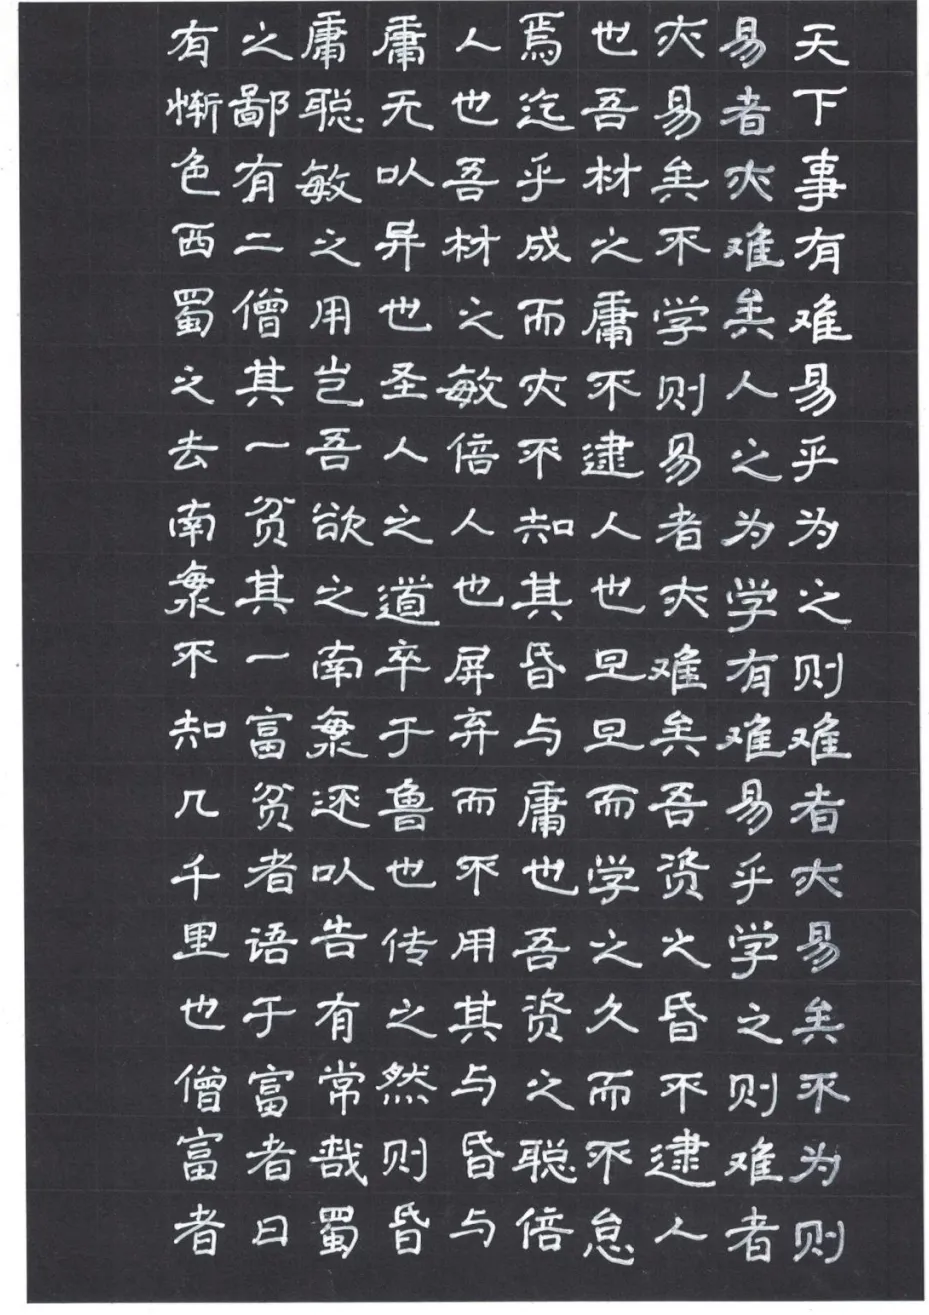 天下事有难易乎为之则难者亦易矣不为则
易者亦难矣人之为学有难易乎学之则难者
亦易矣不学则易者亦难矣吾资之昏不逮人
也吾材之庸不逮人也旦旦而学之久而不怠
焉迄乎成而亦不知其昏与庸也吾资之聪倍
人也吾材之敏倍人也屏弃而不用其与昏与
庸无以异也圣人之道卒于鲁也传之然则昏
庸聪敏之用岂吾欲之南海还以告有常哉蜀
之鄙有二僧其一贫其一富贫者语于富者曰
有惭色西蜀之去南海不知几千里也僧富者